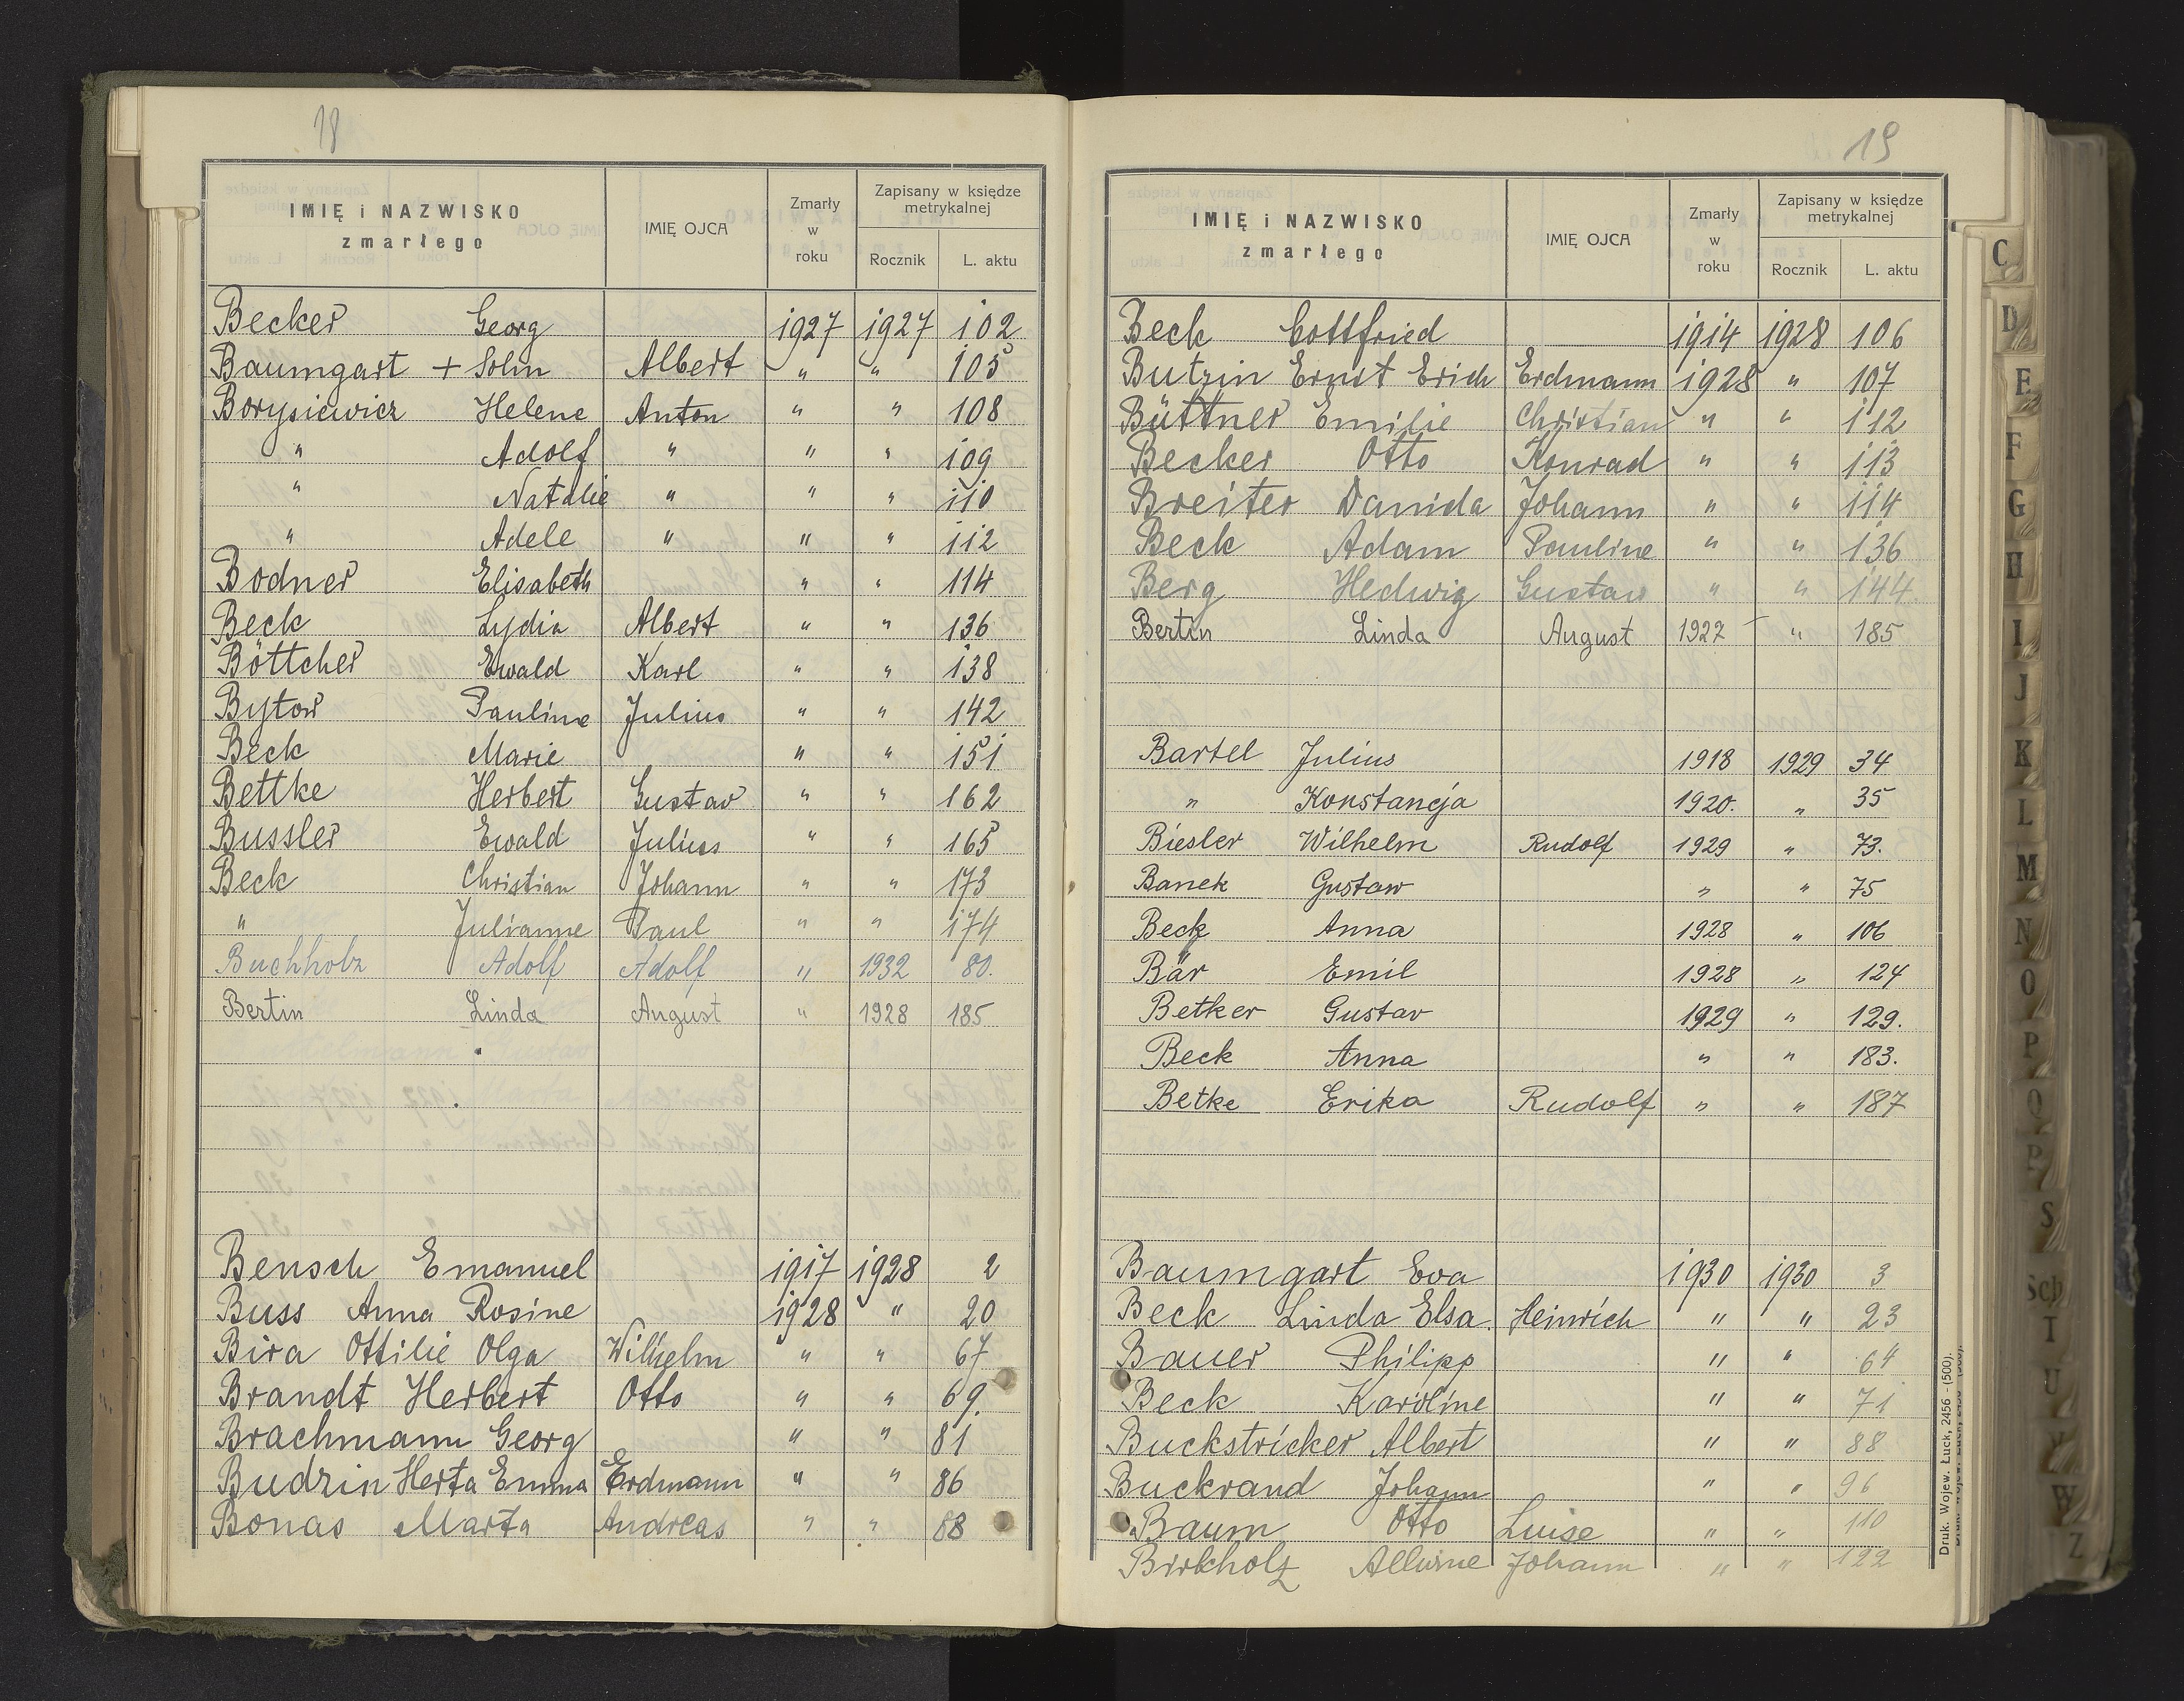 18
IMIĘ i NAZWISKO zmarłego IMIĘ OJCA Zmarły w roku Zapisany w księdze metrykalnej Rocznik L. aktu
Becker Georg 1927 1927 102
Baumgart + Sohn Albert " " 105
Borysiewicz Helene Anton " " 108
" Adolf " " " 109
" Natalie " " " 110
" Adele " " " 112
Bodner Elisabeth " " 114
Beck Lydia Albert " " 136
Böttcher Ewald Karl " " 138
Bytow Pauline Julius " " 142
Beck Marie " " 151
Bettke Herbert Gustav " " 162
Bussler Ewald Julius " " 165
Beck Christian Johann " " 173
" Julianne Paul " " 174
Buchholz Adolf Adolf " 1932 80.
Bertin Linda August " 1928 185
Bensch Emanuel 1917 1928 2
Buss Anna Rosine 1928 " 20
Bira Ottilie Olga Wilhelm " " 67
Brandt Herbert Otto " " 69.
Brachmann Georg " " 81
Budzin Herta Emma Erdmann " " 86
Bonas Marta Andreas " " 88
19
IMIĘ i NAZWISKO zmarłego IMIĘ OJCA Zmarły w roku Zapisany w księdze metrykalnej Rocznik L. aktu
Beck Gottfried 1914 1928 106
Butzin Ernst Erich Erdmann 1928 " 107
Büttner Emilie Christian " " 112
Becker Otto Konrad " " 113
Breiter Danida Johann " " 114
Beck Adam Pauline " " 136
Berg Hedwig Gustav " " 144
Bertin Linda August 1927 " 185
Bartel Julius 1918 1929 34
" Konstancja 1920. " 35
Biesler Wilhelm Rudolf 1929 " 73.
Banek Gustaw " " 75
Beck Anna 1928 " 106
Bär Emil 1928 " 124
Betker Gustav 1929 " 129.
Beck Anna " " 183.
Betke Erika Rudolf " " 187
Baumgart Eva 1930 1930 3
Beck Linda Elsa. Heinrich " " 23
Bauer Philipp " " 64
Beck Karoline " " 71
Buckstricker Albert " " 88
Buckrand Johann " " 96
Baum Otto Luise " " 110
Birkholz Johann " " 122
Druk. Wojew. Łuck, 2456 - (500).
C
D
E
F
G
H
I
J
K
L
M
N
O
P
Q
R
S
Sch
T
U
V
W
Z